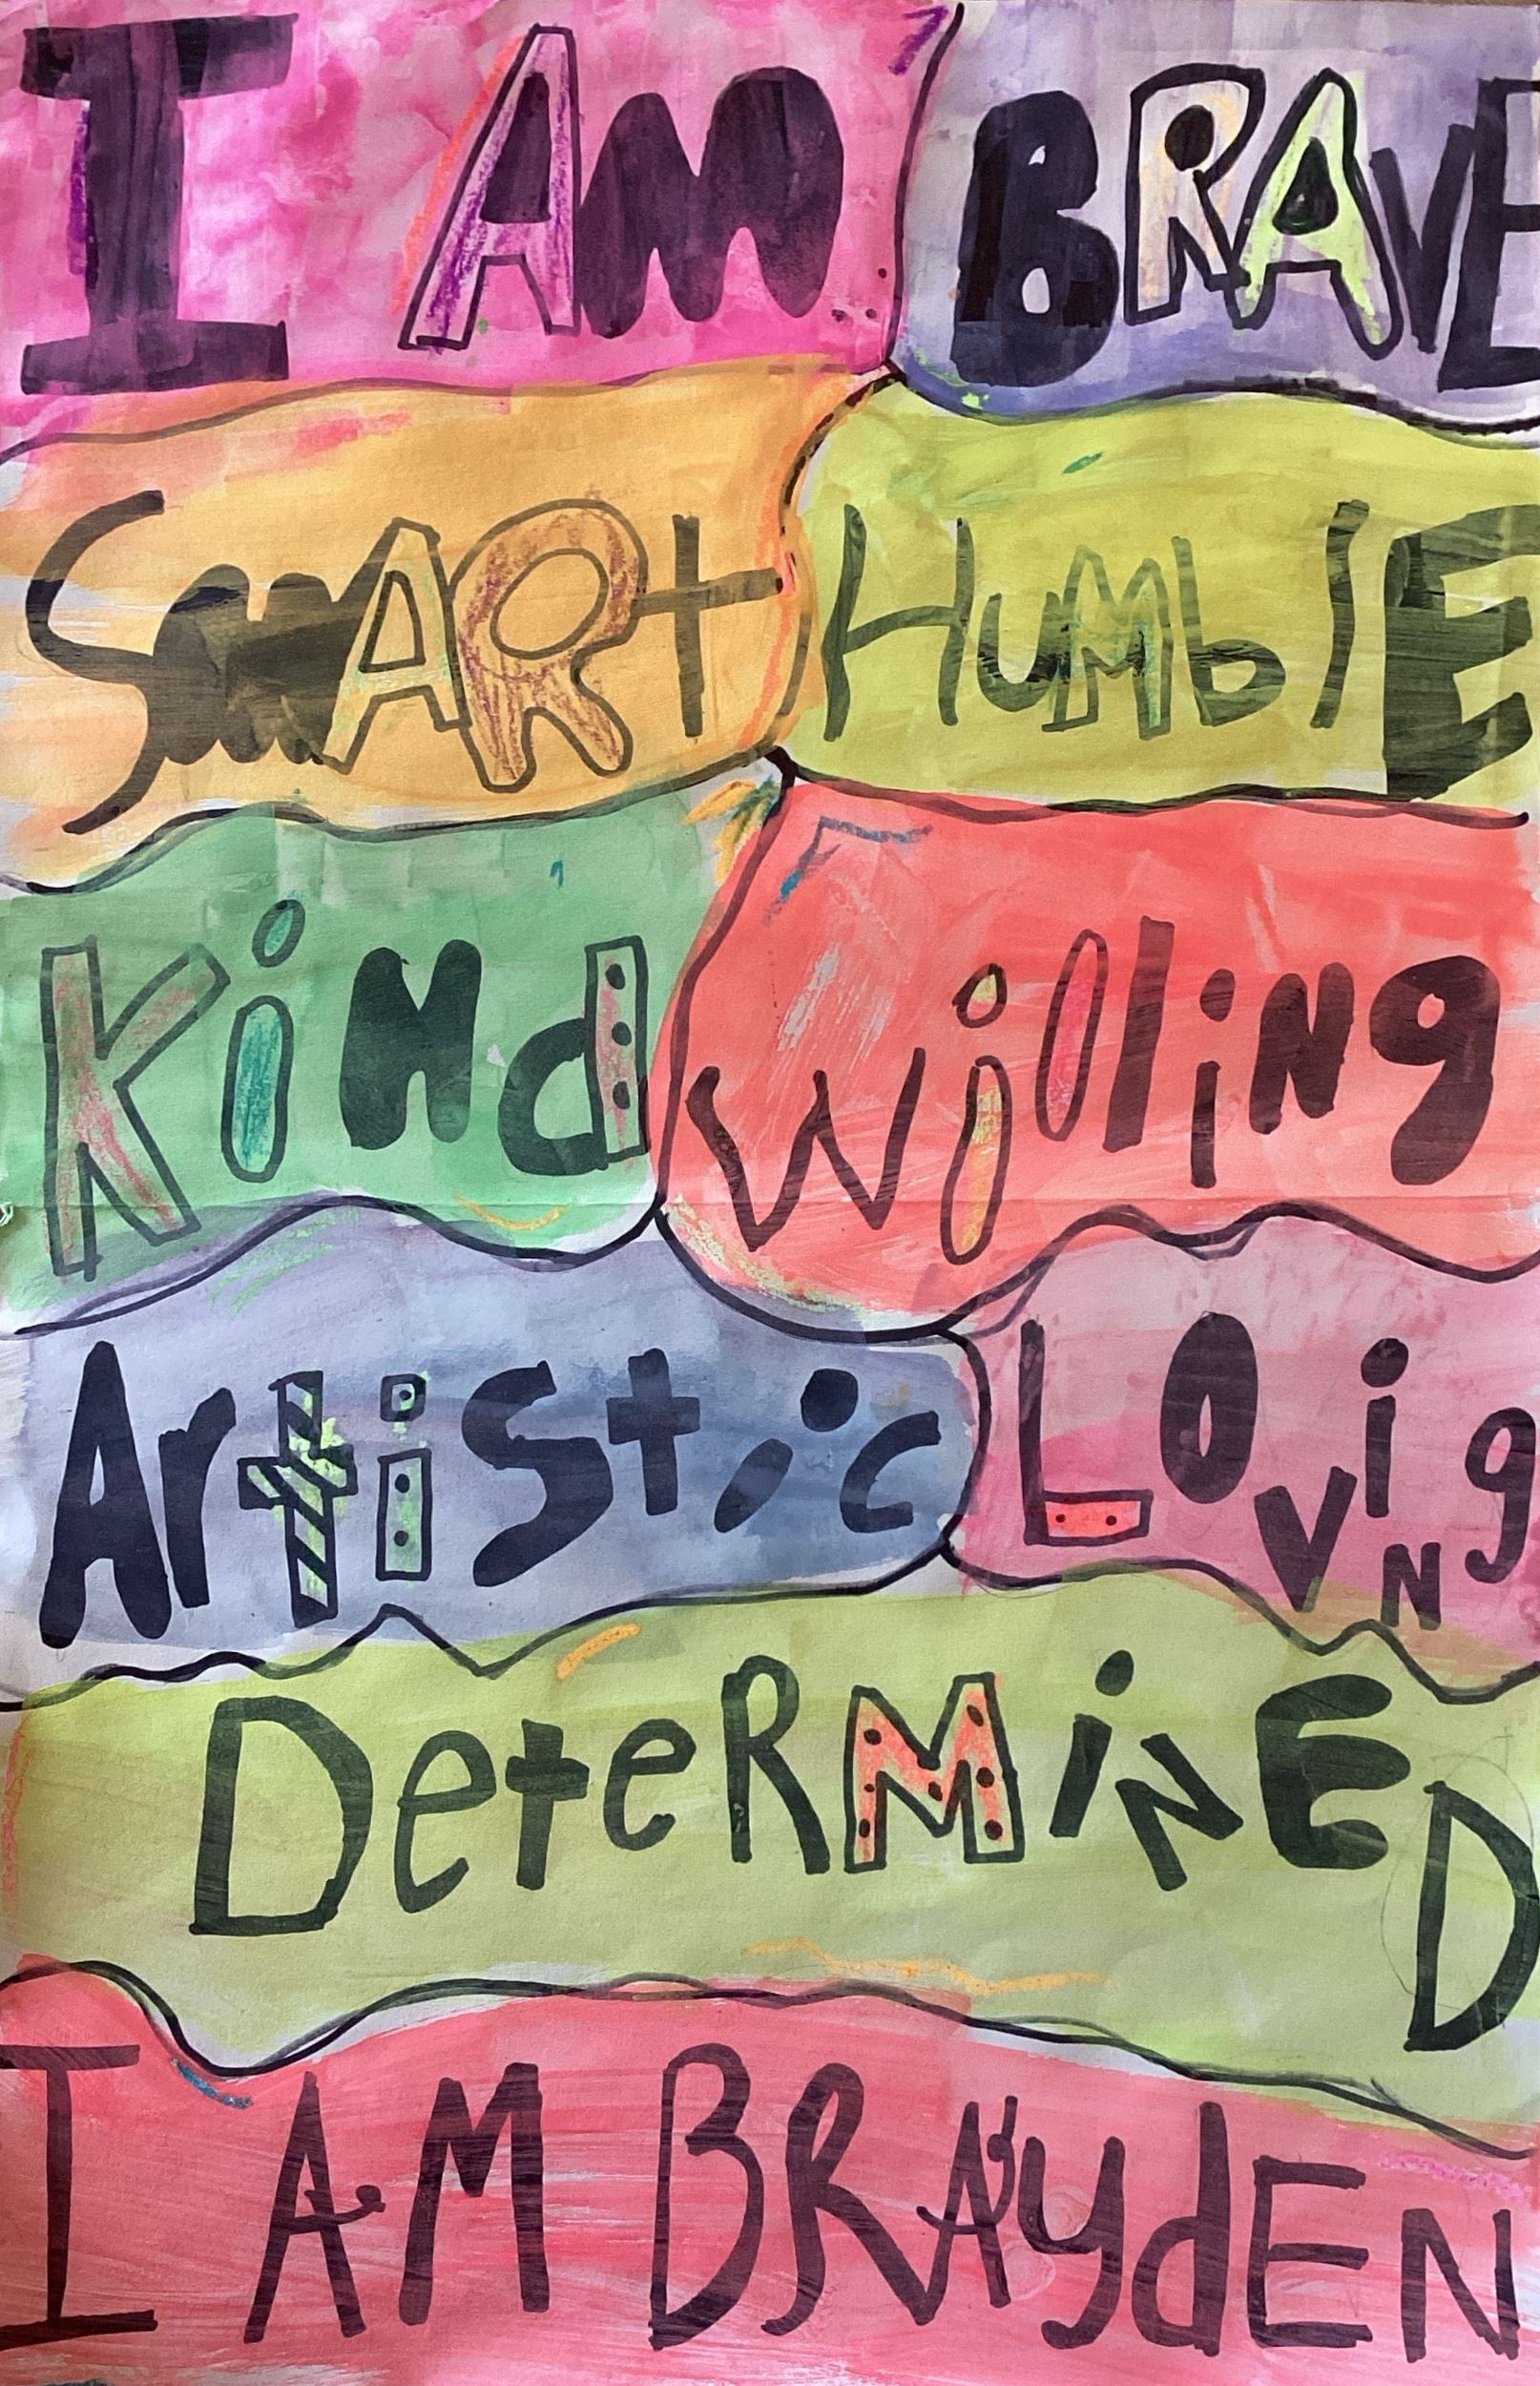 I AM BRAVE
SmARt HumblE
Kind Willing
Artistic LOviNg
DeteRMiNED
I AM BRAydEN